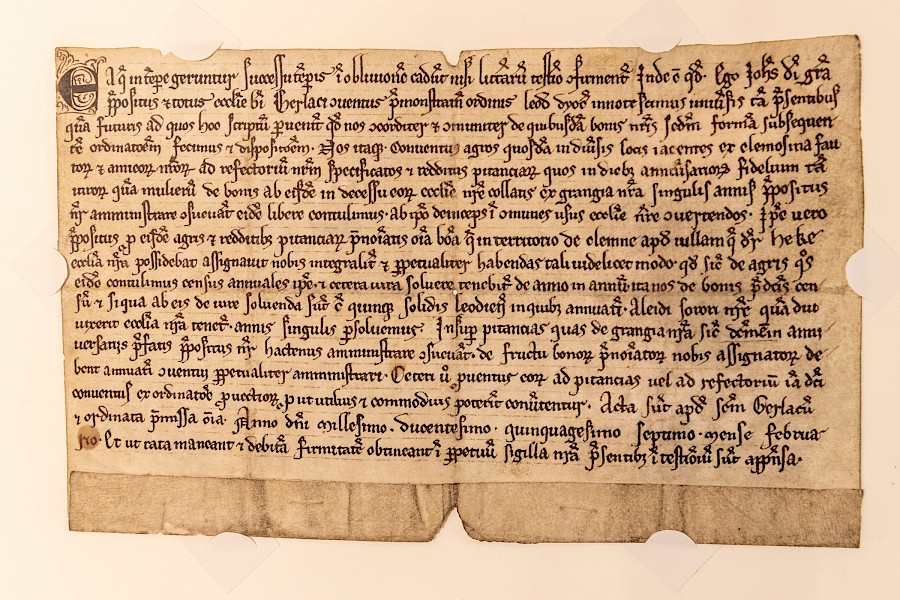 Ea q̄ in tēpe geruntur successu tēpis ī oblivionē cadūt nisi litt̄arū testīo ɔfirment̄ Inde ē qd̄ Ego Joh̄s dī grā
p̄positus ⁊ totus ecclīe bī Gerlaci ɔventus p̄monstratn̄ ordinis leod̄ dyoc̄ innotescimus univ̄sis tā p̄sentibus
quā futuris ad quos hoc scriptū pervenit qd̄ nos ɔcorditer ⁊ ɔmuniter de quibusdā bonis nr̄is scdm̄ formā subsequen
tē ordinatōem fecimus ⁊ dispositōem. Nos itaq̨ Conventus agros quosdā in diūsis locis iacentes ex elemosina fau
torꝝ ⁊ amicorꝝ nr̄orꝝ ad refectoriū nr̄m specificatos ⁊ redditus pitanciarꝝ quos in diebꝫ annīv̄sariorꝝ fidelium tā
virorꝝ quā mulierū de bonis ab eisdē in decessu eorꝝ ecclīe nr̄e collatis ex grangia nr̄a singulis annis p̄positus
nr̄ amministrare ɔsuevat̄ eidē libere contulimus. ab ip̄o deinceps ī omnes usus ecclīe nr̄e ɔvertendos. Ip̄e vero
p̄positus ꝑ eisdē agris ⁊ redditibꝫ pitanciarꝝ p̄noīatis oīa boā q̄ in territorio de olemne apd̄ iullam q̄ dr̄ heke
ecclīa nr̄a possidebat assignavit nobis integralit̄ ⁊ ꝑpetualiter habendas tali videlicet modo. qd̄ sic̄ de agris q̄s
eidē contulimus census annuales ip̄e. ⁊ cetera iura solvere tenebit̄ de anno in annū. ita nos de bonis p̄dc̄is cen
sū ⁊ si qua ab eis de iure solvenda sūt c̄ quinqꝫ solidis leodien̄ inquibꝫ annuatī. Aleidi sorori nr̄e quā diu
vixerit ecclīa nr̄a tenet̄. annis singulis ꝑsolvemus Insuꝑ pitancias quas de grangia nr̄a sic̄ dc̄m ē in anni
versariis p̄fatis p̄positus nr̄ hactenus amministrare ɔsuevat̄. de fructu bonorꝝ p̄noīatorꝝ nobis assignatorꝝ de
bent annuatī ɔventui ꝑpetualiter amministrari. Ceteri v̄o ꝓventus eorꝝ ad pitancias vel ad refectoriū iā dc̄i
conventus ex ordinatōe ꝓvectiorꝝ. ꝓ ut utilius ⁊ commodius poterit convertentur. Acta sūt apd̄ scm̄ Gerlacū
⁊ ordinata p̄missa oīa. Anno dnī Millesimo. Ducentesimo. quinquagesimo septimo. mense februa
rio. Et ut rata maneant ⁊ debitā firmitatē obtineant ī ꝑpetuū sigilla nr̄a p̄sentibꝫ ī testiōiū sūt app̄nsa.